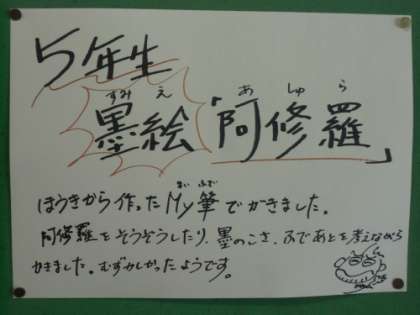 5年生
墨絵「阿修羅」
すみえ
あしゅら
ほうきから作ったMy筆でかきました。
まいふで
阿修羅をそうぞうしたり、墨のこさ、ふであとを考えながら
かきました。むずかしかったようです。